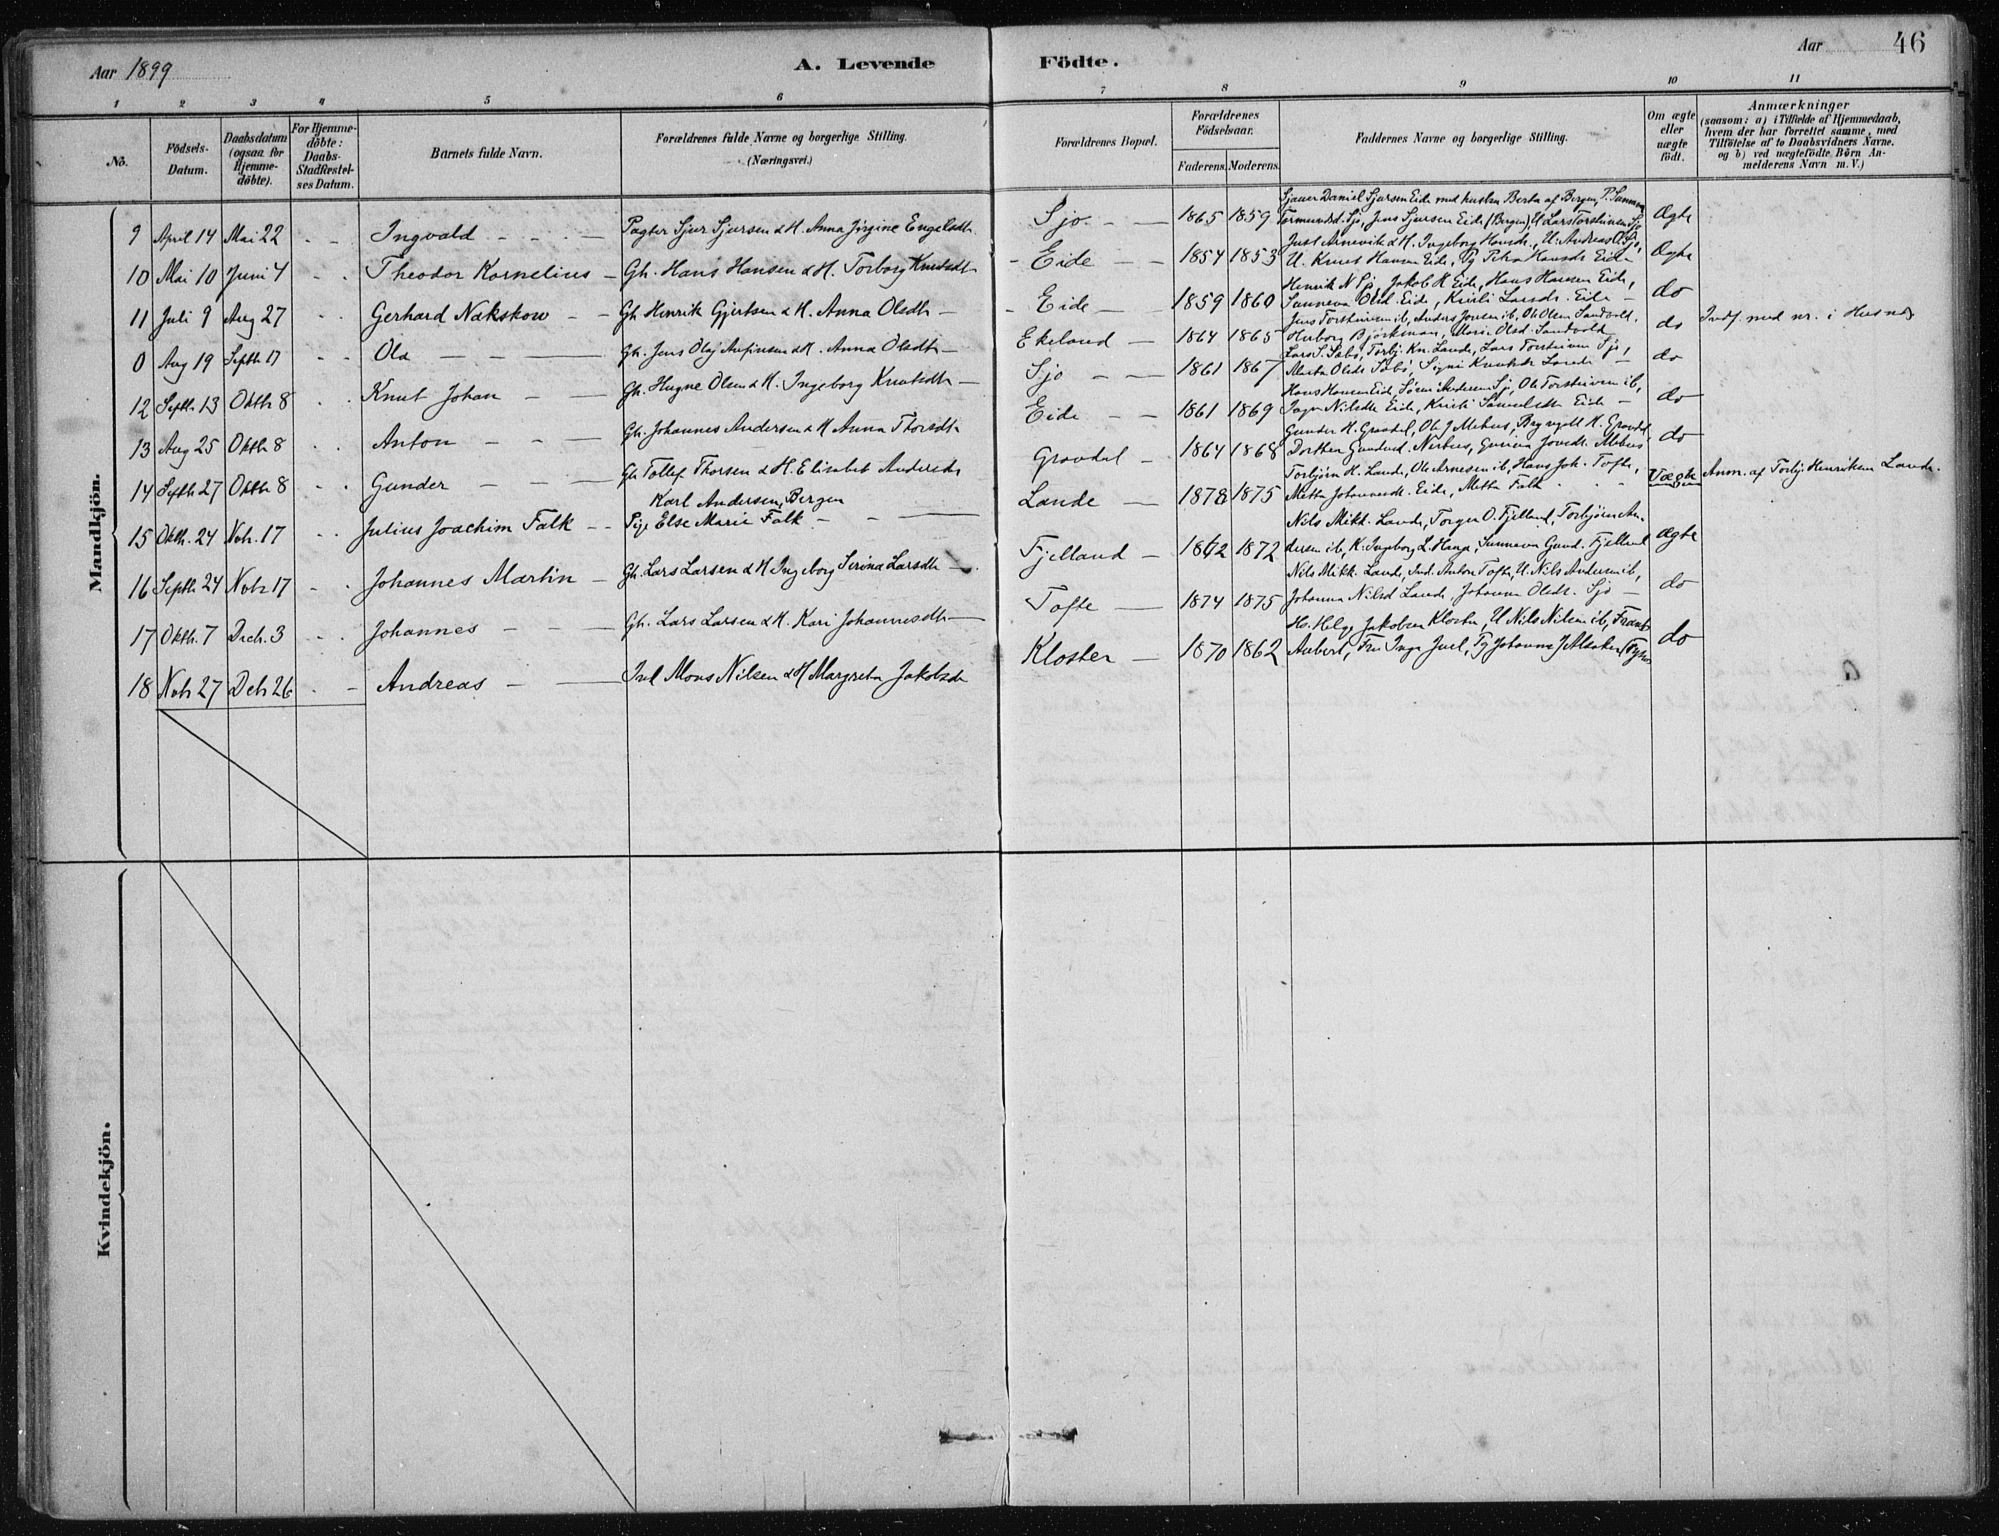 Aar 1899
A. Levende
Födte.
Aar
46
1
2
3
4
5
6
7
8
9
10
11
No.
Födsels-Datum.
Daabsdatum (ogsaa for Hjemme-döbte).
For Hjemme-döbte: Daabs-Stadfæstel-ses Datum.
Barnets fulde Navn.
Forældrenes fulde Navne og borgerlige Stilling. (Næringsvei.)
Forældrenes Bopæl.
Forældrenes Födselsaar.
Faderens.
Moderens.
Faddernes Navne og borgerlige Stilling.
Om ægte eller uægte födt.
Anmærkninger
(saasom: a) i Tilfælde af Hjemmedaab,
hvem der har forrettet samme, med
Tilföielse af to Daabsvidners Navne,
og b) ved uægtefödte Börn An-
melderens Navn m. V.)
Mandkjön.
9 April 14 Mai 22 Ingvald Pagter Sjur Sjursen & H. Anna Jörgine Engelsdtr Sjo 1865 1859 Ægte
Sjauer Daniel Sjursen Eide med hustru Berta af Bergen, P. Sunneva
Tormundsd. Sjo, Jens Sjursen Eide (Bergen), U Lars Torstensen Sjo
10 Mai 10 Juni 4 Theodor Kornelius Gh. Hans Hansen & H. Torborg Knutsdtr Eide 1854 1853 Ægte
Just Arnevik & H. Ingeborg Hansdr., U. Andreas
U. Knut Hansen Eide, Pg Petra Hansdr Eide
11 Juli 9 Aug 27 Gerhard Nakskow Gh Henrik Gjertsen & H. Anna Olsdtr Eide 1859 1860 do
Henrik N Sjo, Jakob H Eide, Hans Hansen Eide,
Sunneva Olsd. Eide, Kirsti Larsdr. Eide
0 Aug 19 Septbr 17 Ola Gh. Jens Olaj Anfinsen & H. Anna Olsdtr Ekeland 1864 1865 do Indf. med nr. i Husnes
Jens Torstensen ib, Anders Jonsen ib, Ole Olsen Sandvold,
Huborg Bjørkman, Mari Olsd. Sandvold
12 Septbr 13 Oktbr 8 Knut Johan Gh. Hugne Olsen & H. Ingeborg Knutsdtr Sjo 1861 1867 do
Lars S. Sæbö, Torbj. Kn. Lande, Lars Torstensen Sjo,
Marta Olsdr Sæbö, Signi Knutsdr Lande
13 Aug 25 Oktbr 8 Anton Gh. Johannes Andersen & H Anna Thorsdtr Eide 1861 1869 do
Hans Hansen Eide, Sören Andersen Sjo, Ole Torstensen ib,
Inger Nilsdtr Eide, Kristi Samuelsdtr Eide
14 Septbr 27 Oktbr 8 Gunder Gh Tollef Thorsen & H. Elisabet Andersdr Gravdal 1864 1868 do
Gunder H. Gravdal, Ole J Mehus, Brynjulf H. Gravdal
Dorthea Gundersd. Nerhus, Guriva Jovedr. Mehus
15 Oktbr. 24 Nvbr. 17 Julius Joachim Falk Karl Andersen, Bergen
Pige Else Marie Falk Lande 1878 1875 Uægte Anm. af Torbj Henriksen Lande.
Torbjörn H. Lande, Ole Arnesen ib, Hans Joh. Tofte,
Metta Johannesdr. Eide, Metta Falk
16 Septbr 24 Nvbr 17 Johannes Martin Gh. Lars Larsen & H Ingeborg Serina Larsdtr Fjelland 1872 1872 Ægte
Nils Mikk. Lande, Torger O. Fjelland, Torbjörn An-
dersen ib, K. Ingeborg L. Haga, Sunneva Gund. Fjelland
17 Oktbr. 7 Dcbr. 3 Johannes Gh. Lars Larsen & H. Kari Johannesdtr Tofte 1874 1875 do
Nils Mikk. Lande, Ind. Anton Tofte, U. Nils Andersen ib,
Johanna Nilsd Lande, Johanna Olsdr. Sjo
18 Nvbr 27 Dcbr 26 Andreas Ind Mons Nilsen & H Margreta Jakobsdr Kloster 1870 1862 do
Hr. Helge Jakobsen Kloster, U Nils Nilsen ib, Frants
Aubert, Fru Inga Juel, Pg Johanna J Alsaker
Kvindekjön.